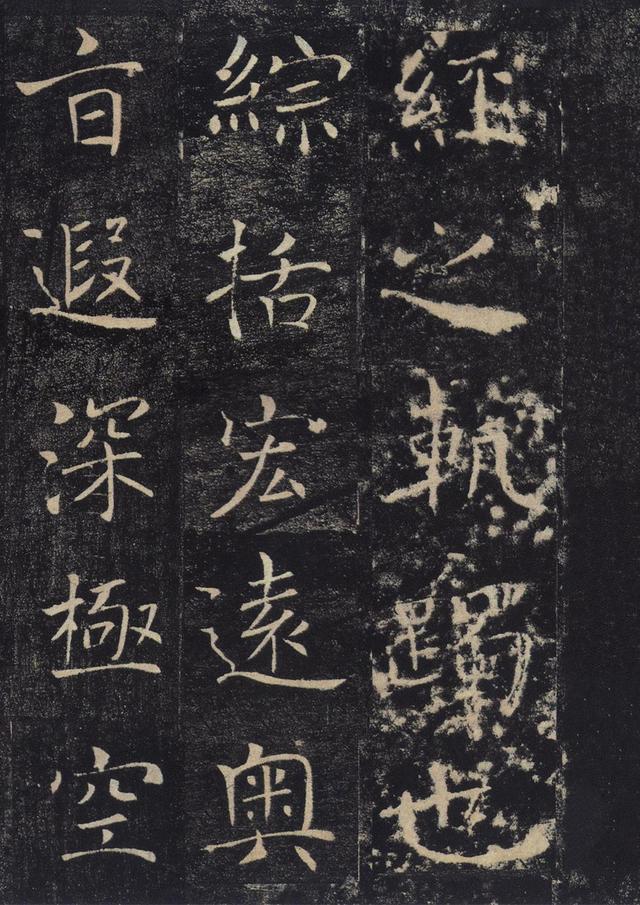 經之軌躅也
綜括宏遠奧
旨遐深極空